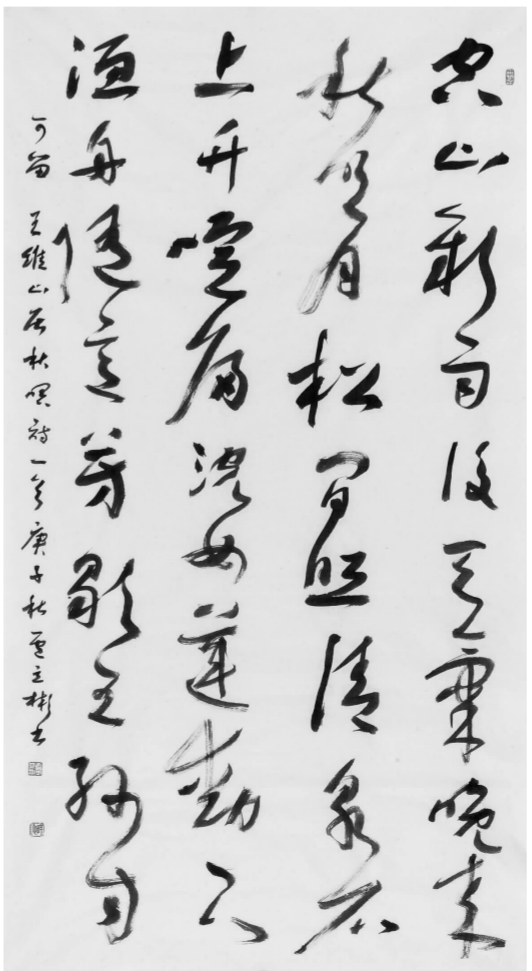 空山新雨後天氣晚来
秋明月松间照清泉石
上竹喧歸浣女蓮動下
漁舟隨意芳歇王孫自
可留 王維山居秋暝詩一首庚子秋盧立彬书